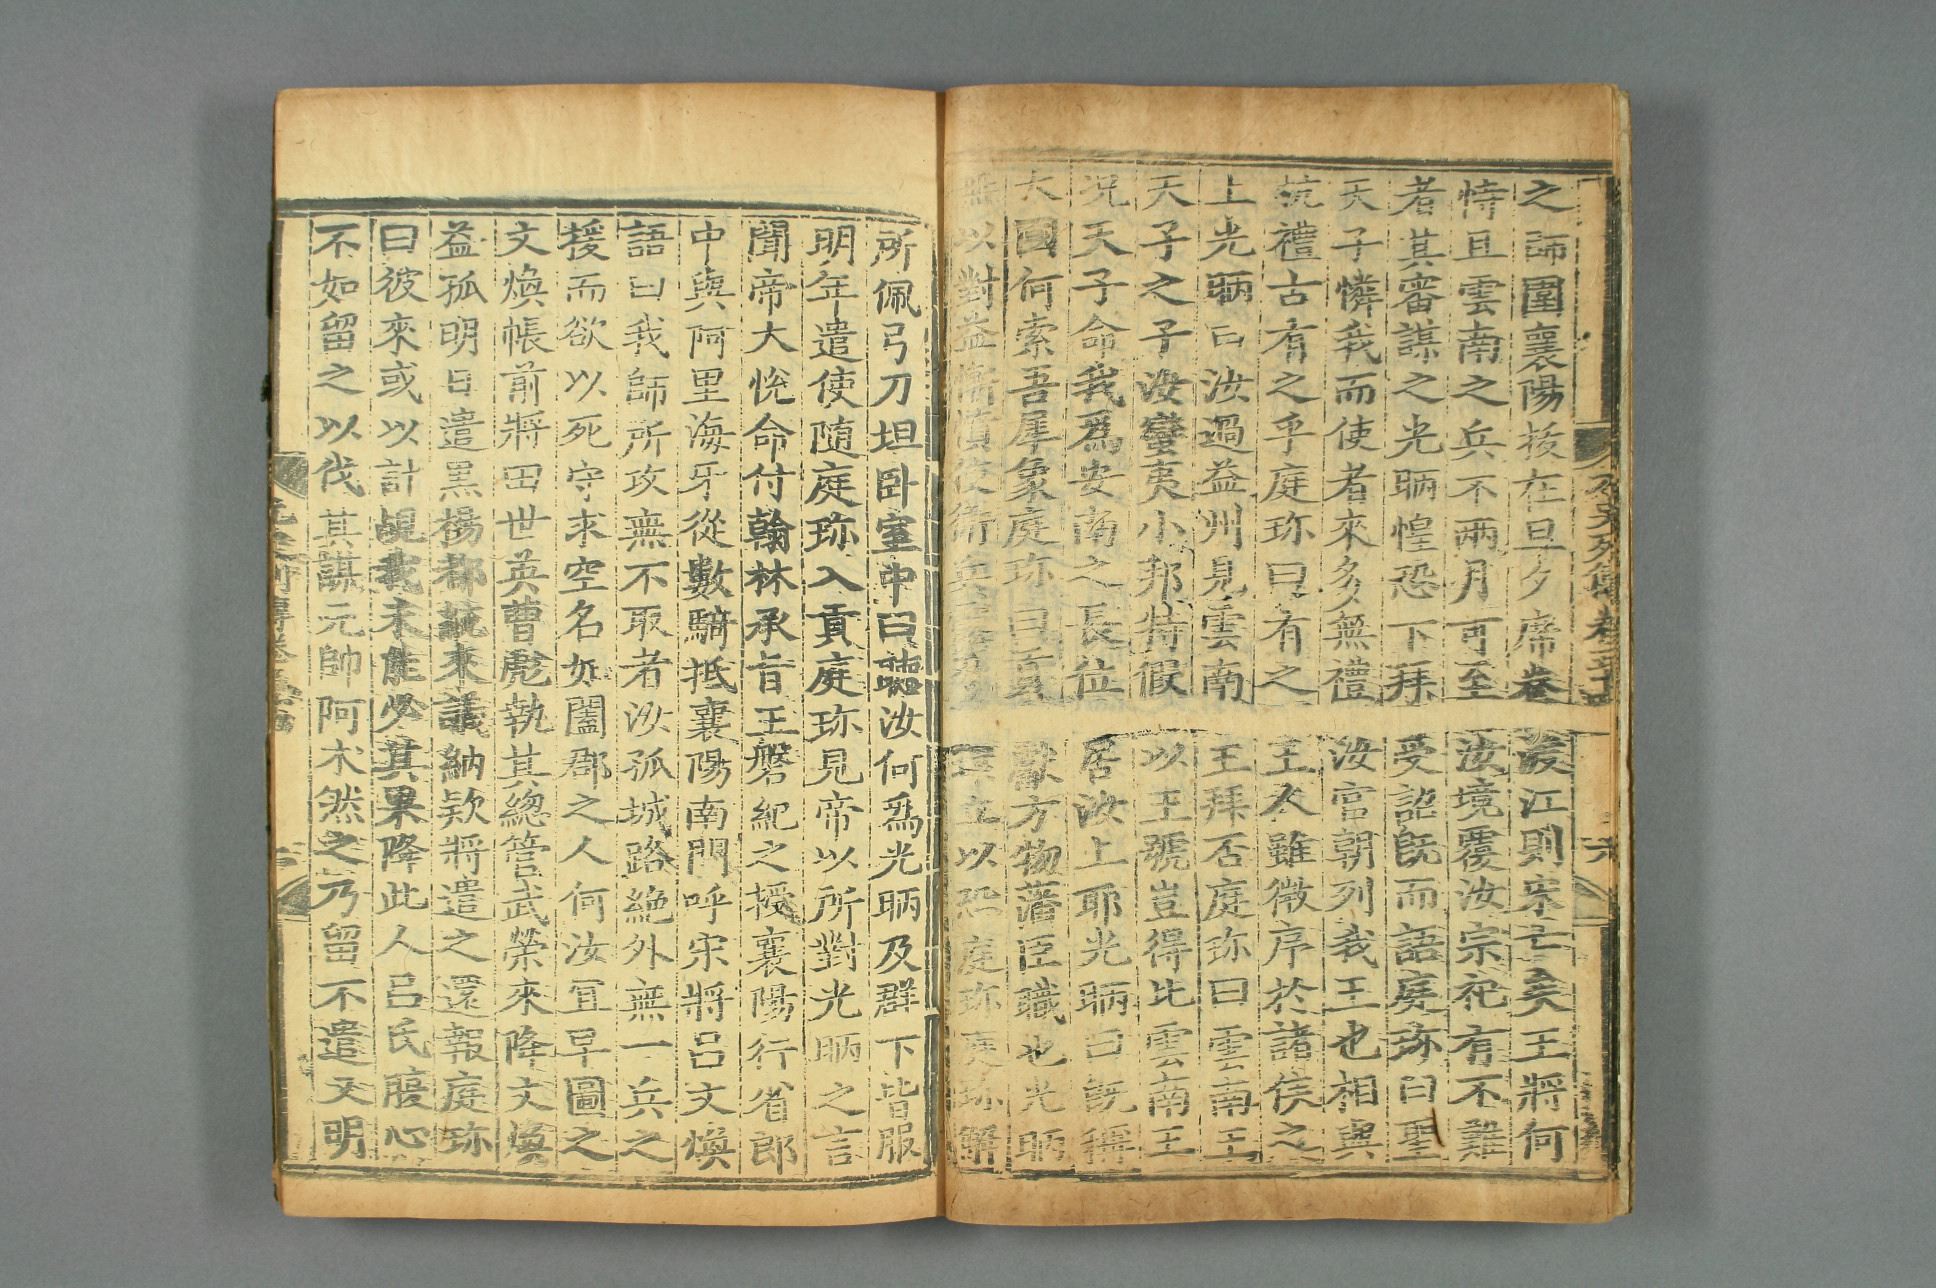 元史列傳卷五十四 六
之師圍襄陽拔在旦夕席卷渡江則宋亡矣王將何
恃且雲南之兵不兩月可至汝境覆汝宗祀有不難
者其審謀之光昞惶恐下拜受詔旣而語庭珍曰聖
天子憐我而使者來多無禮汝官朝列我王也相與
抗禮古有之乎庭珍曰有之王人雖微序於諸侯之
上光昞曰汝過益州見雲南王拜否庭珍曰雲南王
天子之子汝蠻夷小邦特假以王號豈得比雲南王
况天子命我爲安南之長位居汝上耶光昞曰旣稱
大國何索吾犀象庭珍曰貢獻方物藩臣職也光昞
無以對益慚憤使衛兵露刃環立以恐庭珍庭珍解
所佩弓刀坦卧室中曰聽汝何爲光昞及群下皆服
明年遣使随庭珍入貢庭珍見帝以所對光昞之言
聞帝大悅命付翰林承旨王磐紀之授襄陽行省郎
中與阿里海牙從數騎抵襄陽南門呼宋將呂文煥
語曰我師所攻無不取者汝孤城路絶外無一兵之
援而欲以死守求空名如闔郡之人何汝宜早圖之
文煥帳前將田世英曹彪執其總管武榮來降文煥
益孤明日遣黑楊都統來議納欵將遣之還報庭珍
曰彼來或以計覘我未能必其果降此人呂氏腹心
不如留之以伐其謀元帥阿朮然之乃留不遣文明